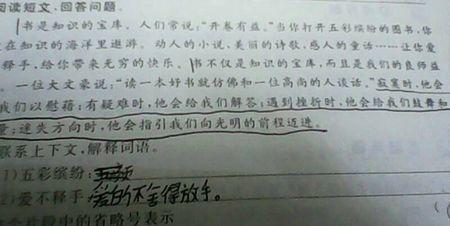 阅读短文,回答问题。
书是知识的宝库。人们常说:“开卷有益。”当你打开五彩缤纷的图书,你
在知识的海洋里遨游。动人的小说,美丽的诗歌,感人的童话……让你爱
释手,给你带来无穷的快乐。书不仅是知识的宝库,而且是我们的良师益
一位大文豪说:“读一本好书就仿佛和一位高尚的人谈话。”寂寞时,他会
我们以慰藉;有疑难时,他会给我们解答;遇到挫折时,他会给我们鼓舞和
量;迷失方向时,他会指引我们向光明的前程迈进。
联系上下文,解释词语。
(1)五彩缤纷:
(2)爱不释手:爱的不舍得放手。
个片段中的省略号表示